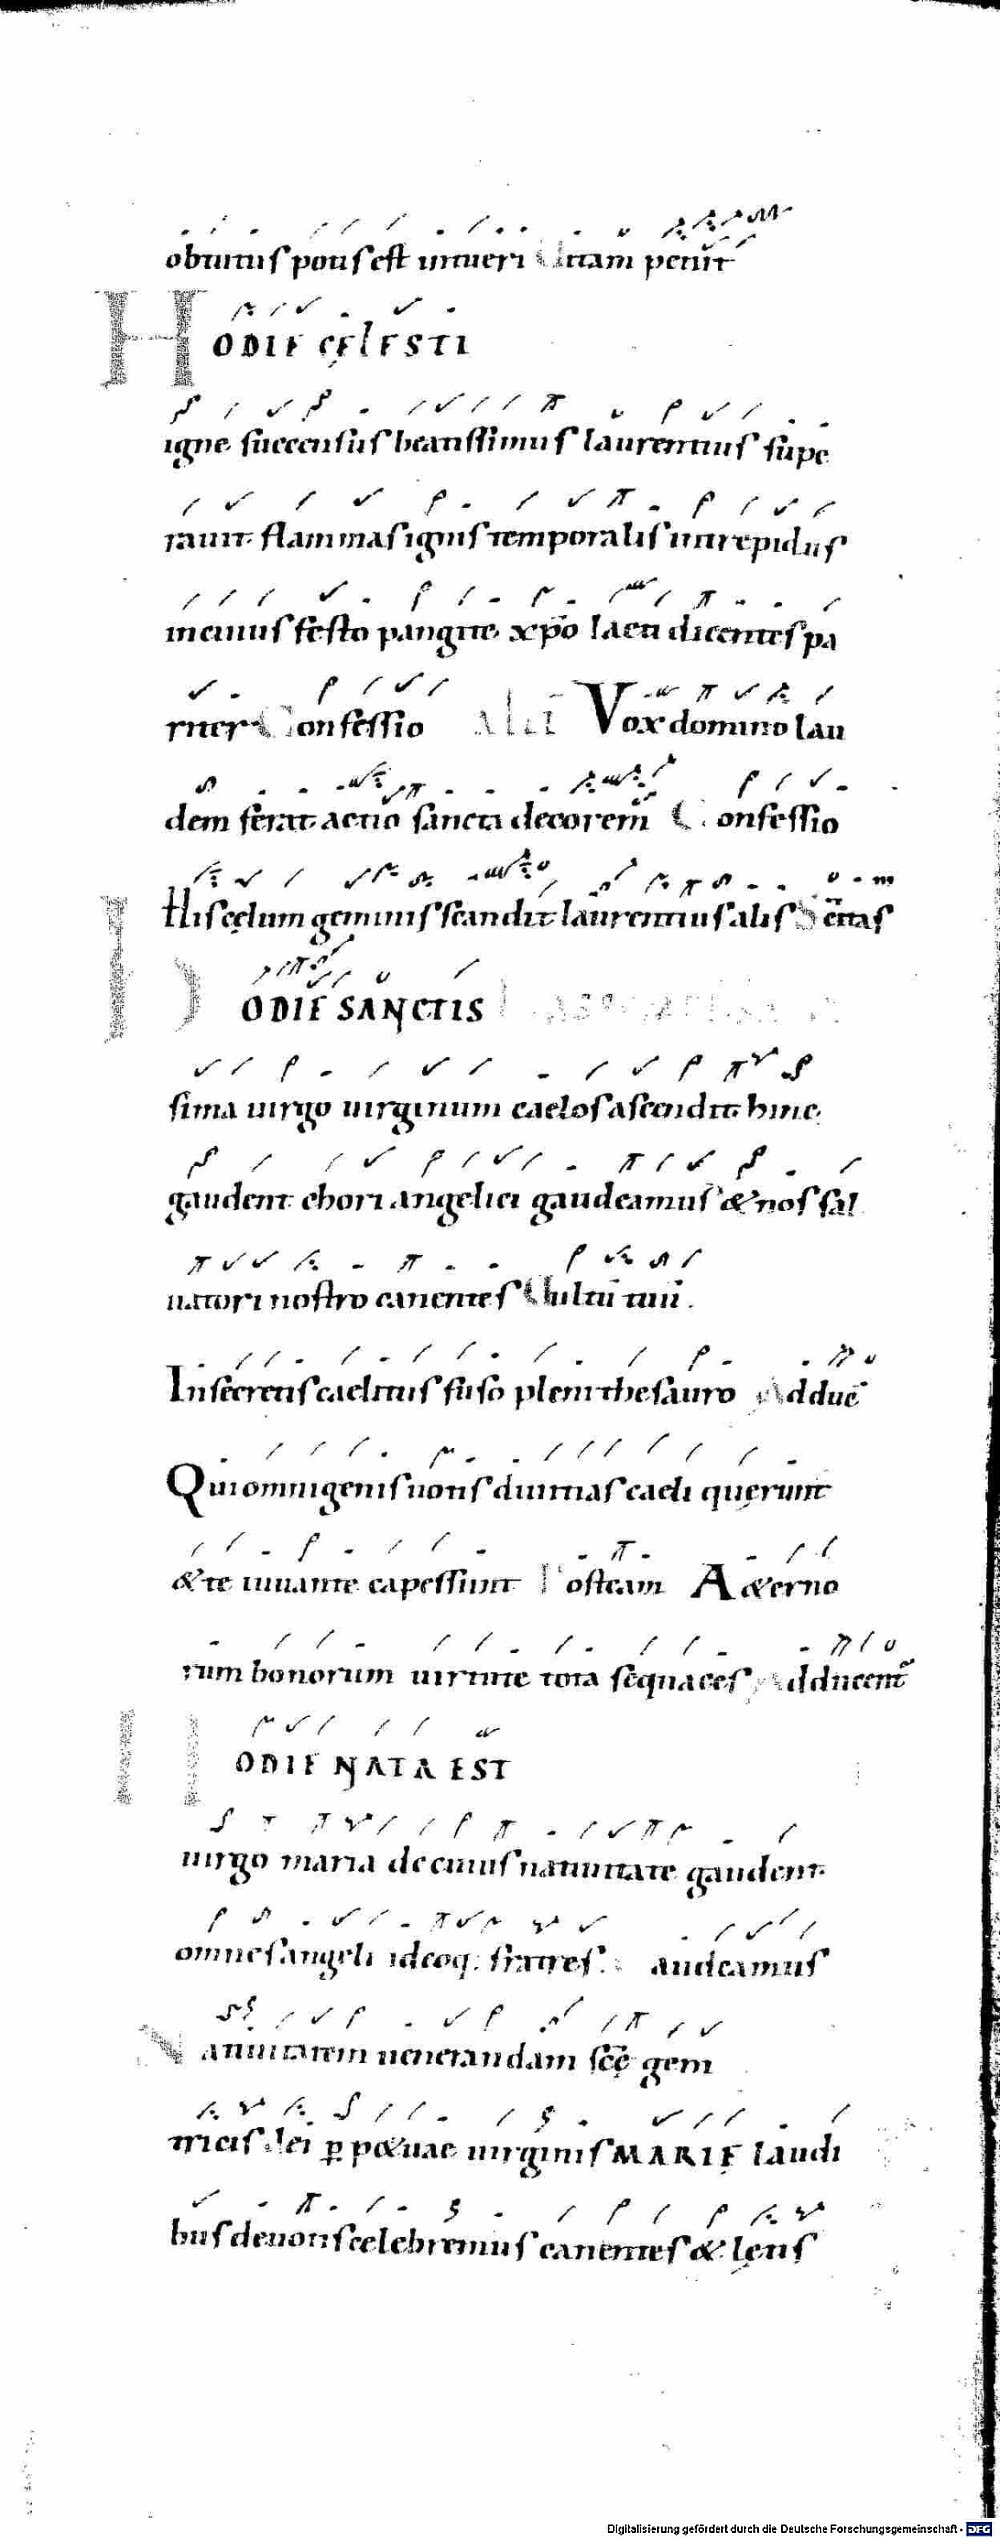 obtutus potis est intueri Vitam petiit
HODIE CĘLESTI
igne succensus beatissimus laurentius supe
rauit flammas ignis temporalis intrepidus
incuius festo pangite xpo laeti dicentes pa
riter Confessio Alii Vox domino lau
dem ferat actio sancta decorem Confessio
His cęlum geminis scandit laurentius alis Scitas
HODIE SANCTIS
sima uirgo uirginum caelos ascendit hinc
gaudent chori angelici gaudeamus & nos sal
uatori nostro canentes Vultū tuū.
In secretis caelitus fuso pleni thesauro Adduc
Qui omnigenis uotis diuitias caeli quęrunt
& te iuuante capessunt Posteam A&erno
rum bonorum uirtute tota sequaces Adducent
HODIE NATA EST
uirgo maria de cuius natiuitate gaudent
omnes angeli ideoq; fratres Gaudeamus
Natiuitatem uenerandam scę gem
tricis dei perp&uae uirginis MARIĘ laudi
bus deuotis celebremus canentes & lętis
Digitalisierung gefördert durch die Deutsche Forschungsgemeinschaft - DFG